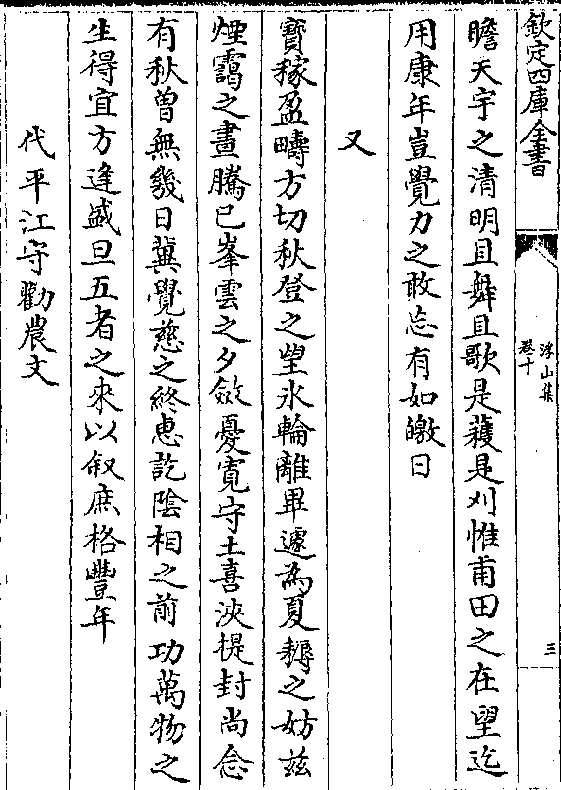 欽定四庫全書
浮山集
卷十
三
瞻天宇之清明且舞且歌是穫是刈惟甫田之在望迄
用康年豈覺力之敢忘有如皦日
又
寶稼盈疇方切秋登之望氷輪離畢遽為夏耨之妨兹
煙靄之晝騰已峯雲之夕斂憂寛守土喜浹提封尚念
有秋曽無幾日冀覺慈之終恵訖陰相之前功萬物之
生得宜方逢盛旦五者之來以叙庶格豐年
代平江守勸農文